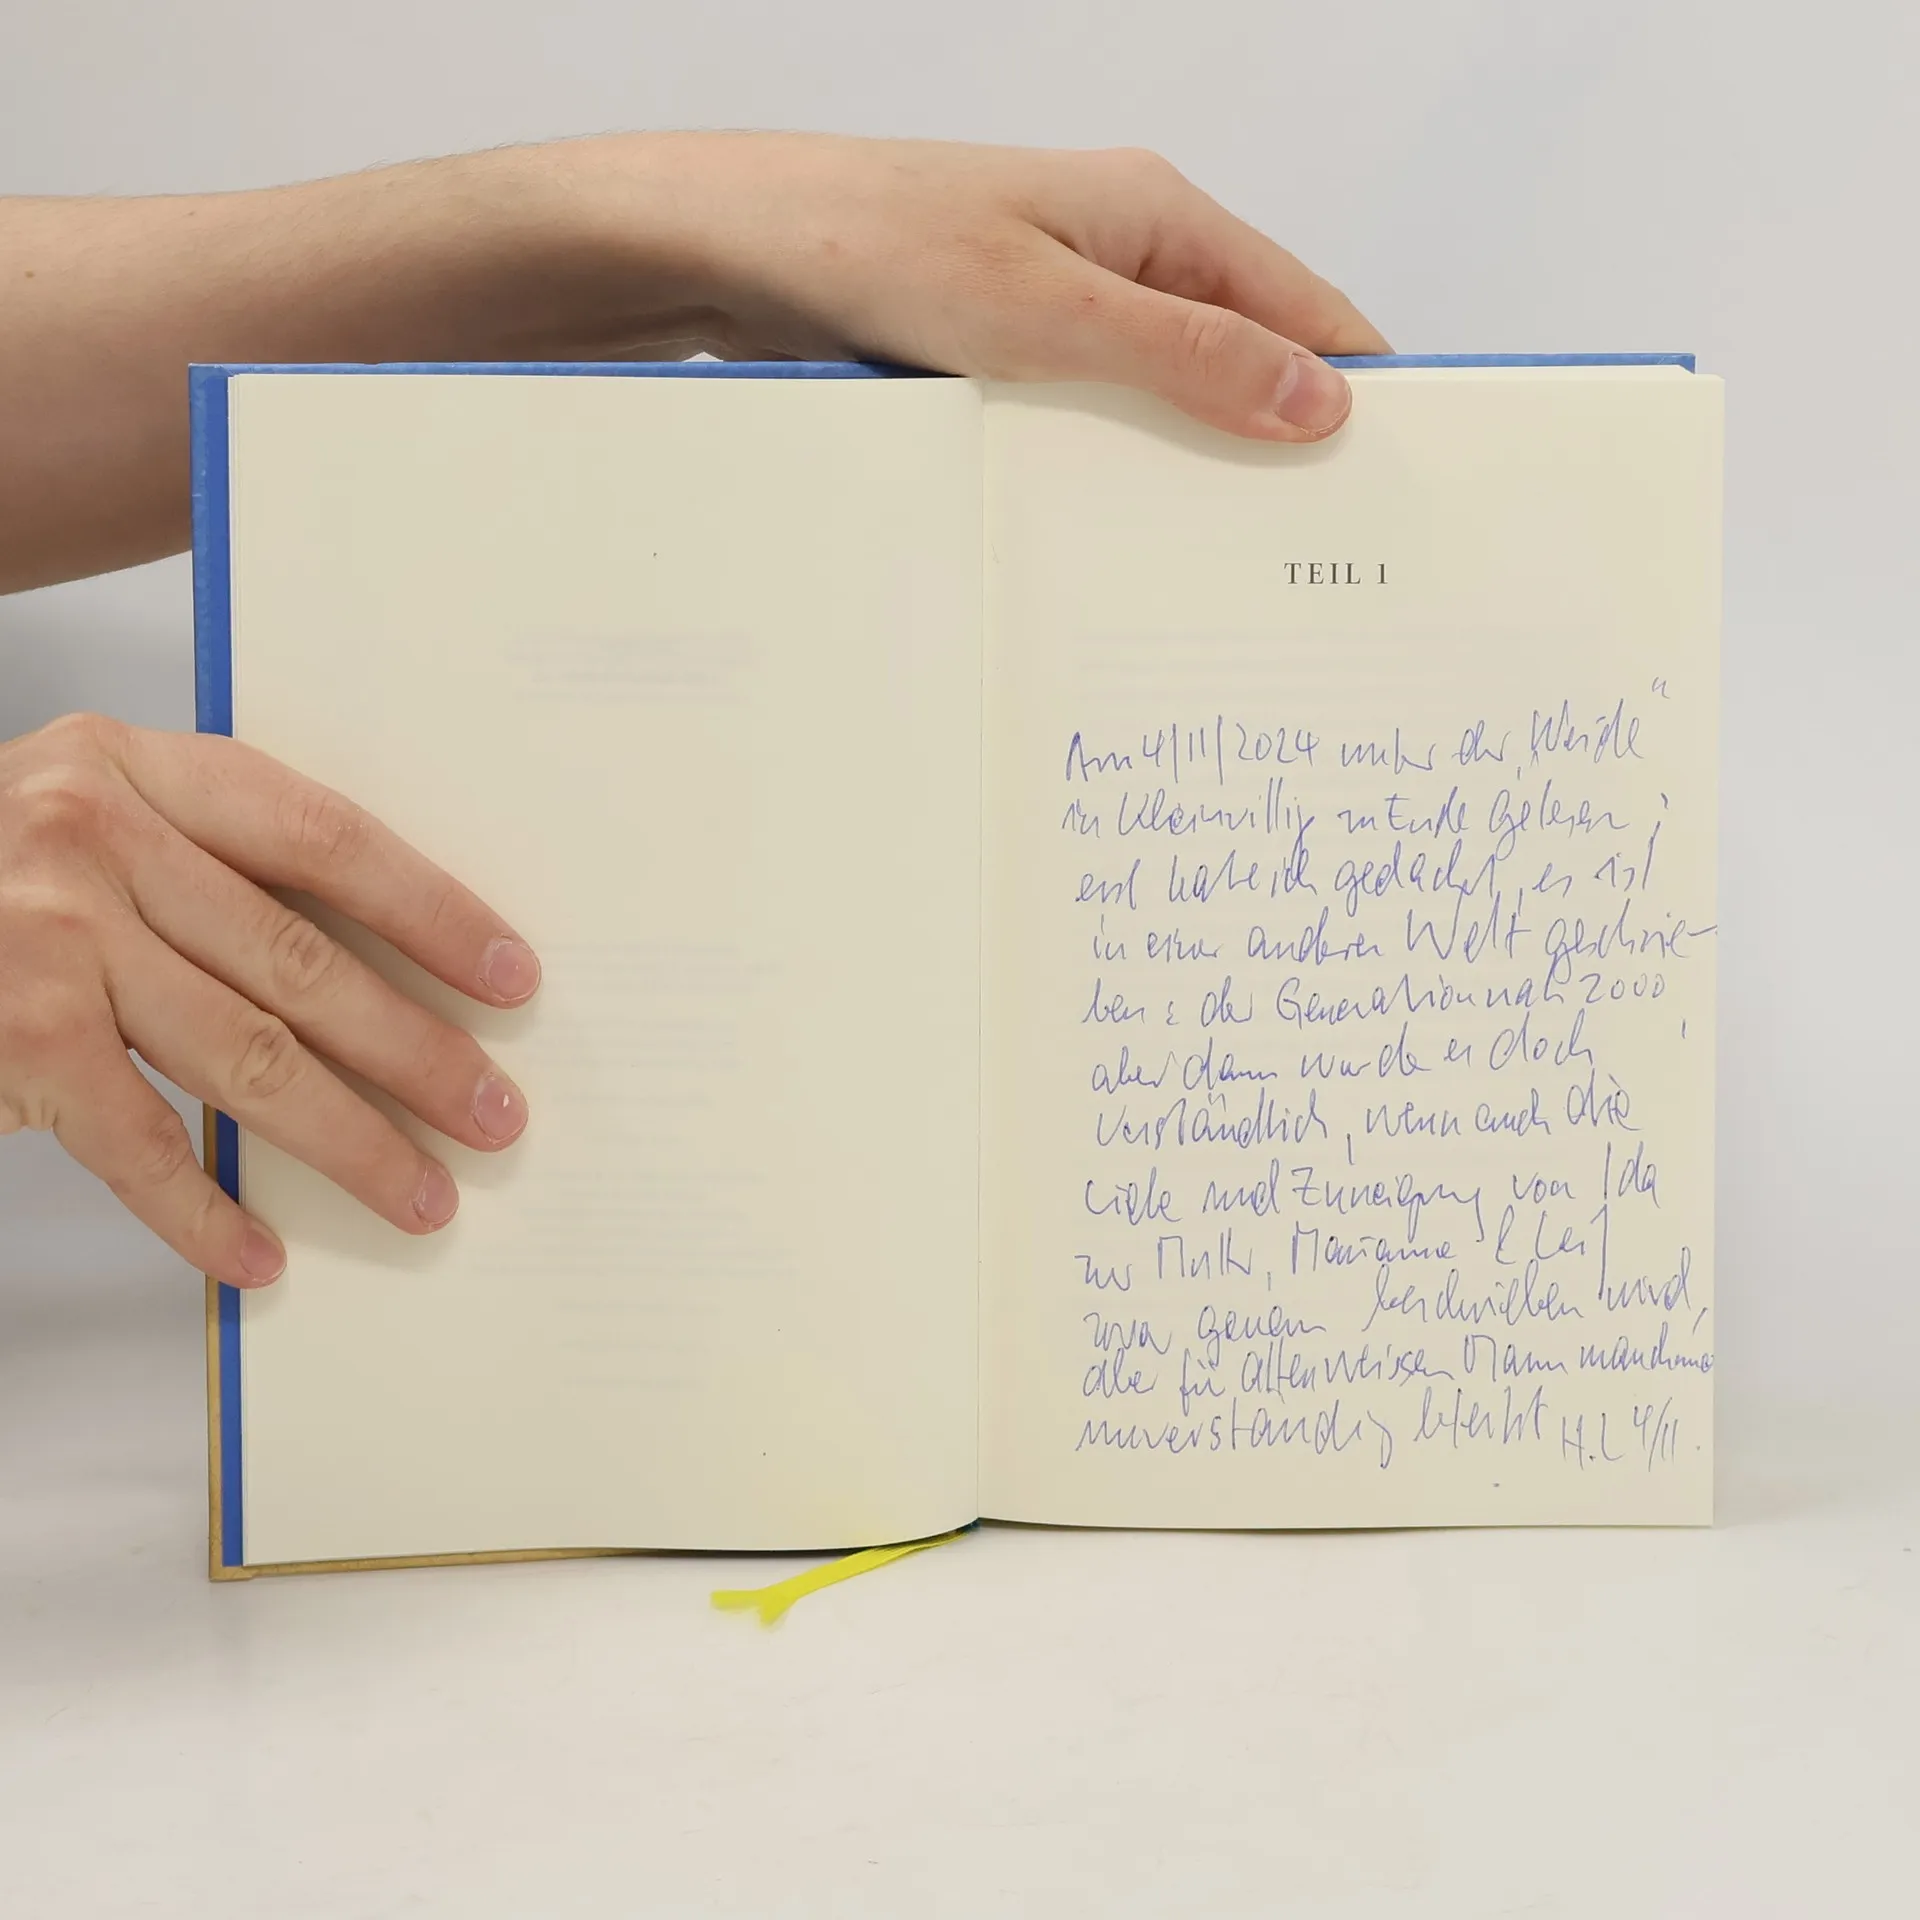 TEIL 1
Am 4/11/2024 unter der „Weide“
in Kleinvillig zu Ende gelesen ;
erst habe ich gedacht, es ist
in einer anderen Welt geschrie-
ben & der Generation nach 2000
aber dann wurde es doch
verständlich, wenn auch die
Liebe und Zuneigung von Ida
zur Mutter, Marianne & Leif
zwar genau beschrieben wird,
aber für alten weissen Mann manchmal
unverständig bleibt H.L 4/11.